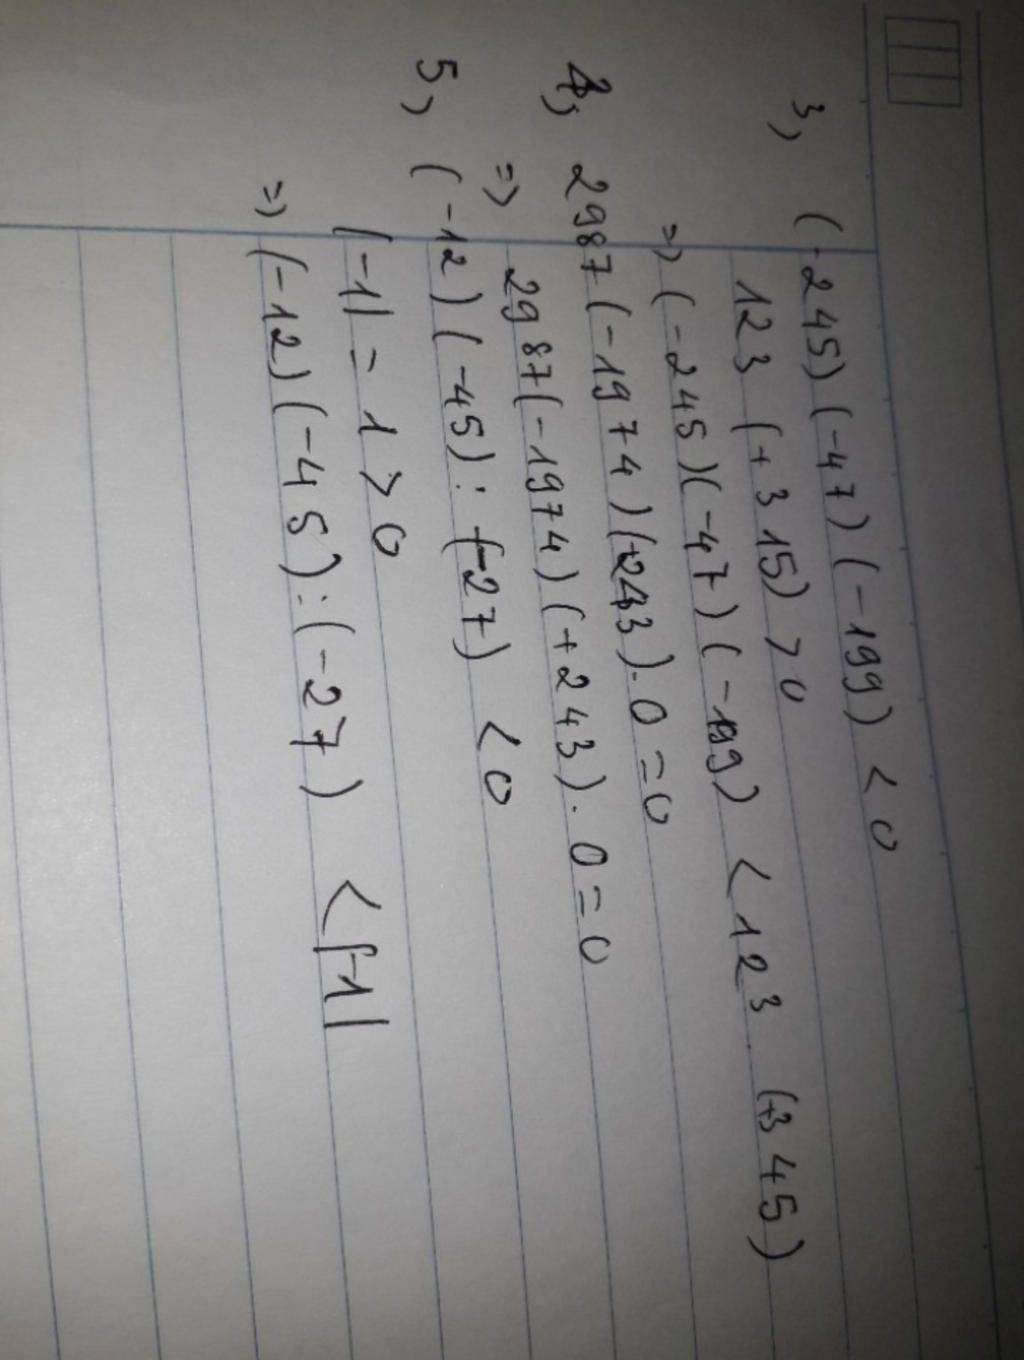 3, (-245)(-47)(-199) < 0
123 (+315) > 0
=> (-245)(-47)(-199) < 123 (+345)
4, 2987(-1974)(+243).0=0
=> 2987(-1974)(+243).0=0
5, (-12)(-45):(-27) < 0
|-1| = 1 > 0
=> (-12)(-45):(-27) < |-1|